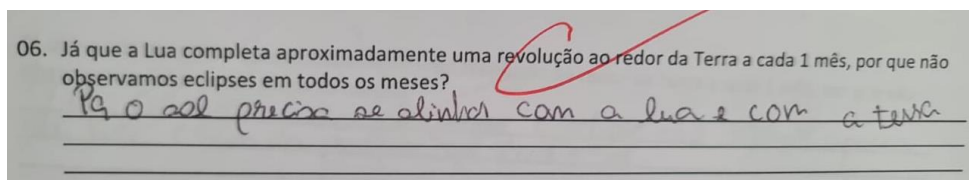 06. Já que a Lua completa aproximadamente uma revolução ao redor da Terra a cada 1 mês, por que não
observamos eclipses em todos os meses?
Pq o sol precisa se alinhar com a lua e com a terra